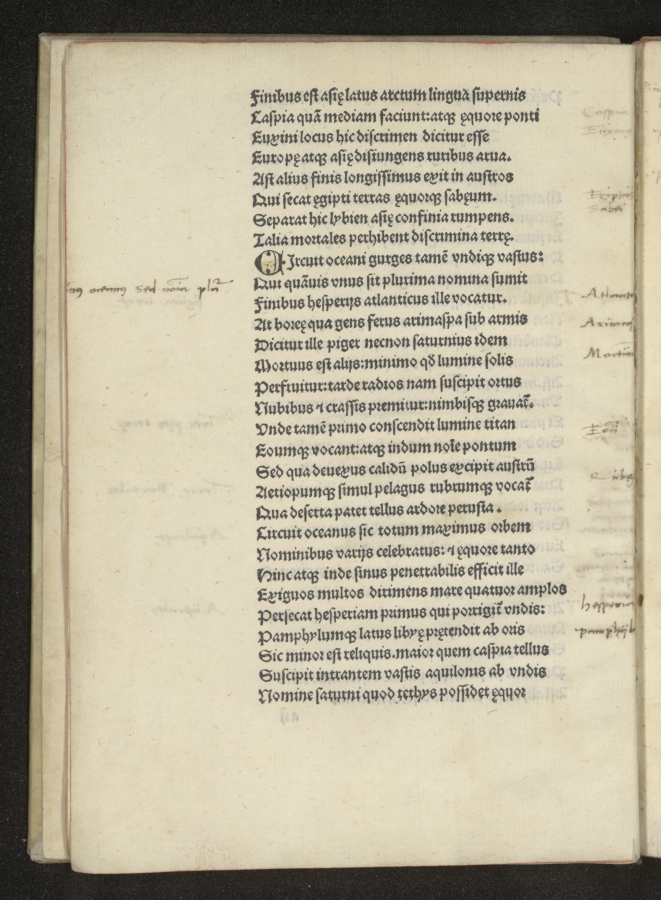 Finibus est asię latus arctum linguā supernis
Caspia quā mediam faciunt:atqꝫ ęquore ponti
Euxini locus hic discrimen dicitur esse
Europę atqꝫ asię disiungens ruribus arua.
Ast alius finis longissimus exit in austros
Qui secat ęgipti terras ęquorqꝫ sabęum.
Separat hic lybien asię confinia rumpens.
Talia mortales perhibent discrimina terrę.
CIrcuit oceani gurges tamē vndiqꝫ vastus:
Qui quāuis vnus sit plurima nomina sumit
Finibus hesperijs atlanticus ille vocatur.
At boreę qua gens ferus arimaspa sub armis
Dicitur ille piger necnon saturnius idem
Mortuus est alijs:minimo qđ lumine solis
Perfruitur:tarde radios nam suscipit ortus
Nubibus ⁊ crassis premitur:nimbisqꝫ grauat̄.
Vnde tamē primo conscendit lumine titan
Eoumqꝫ vocant:atqꝫ indum noīe pontum
Sed qua deuexus calidū polus excipit austrū
Aetiopumqꝫ simul pelagus rubrumqꝫ vocāt
Qua deserta patet tellus ardore perusta.
Circuit oceanus sic totum maximus orbem
Nominibus varijs celebratus: ⁊ ęquore tanto
Hinc atqꝫ inde sinus penetrabilis efficit ille
Exiguos multos dirimens mare quatuor amplos
Persecat hesperiam primus qui porrigit̄ vndis:
Pamphylumqꝫ latus libyę prętendit ab oris
Sic minor est reliquis.maior quem caspia tellus
Suscipit intrantem vastis aquilonis ab vndis
Nomine saturni quod tethys possidet ęquor